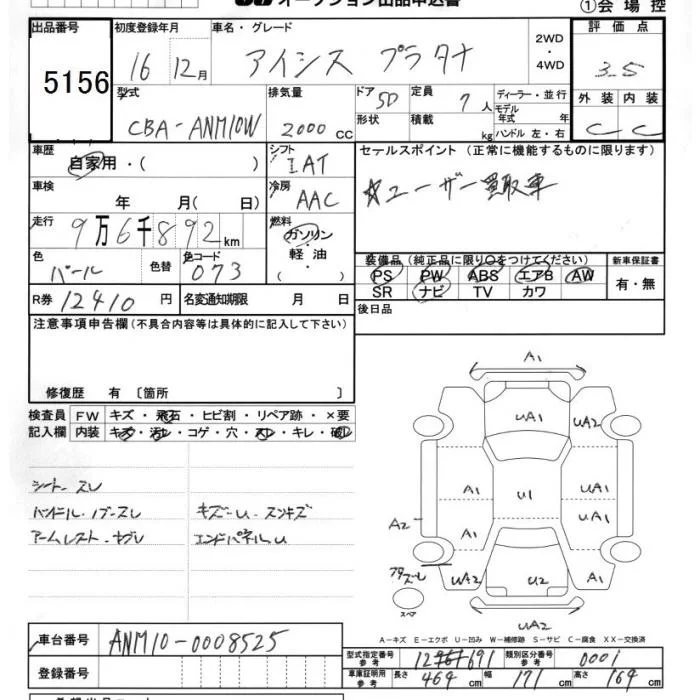 オークション出品申込書
①会場控
出品番号 初度登録年月 車名・グレード 2WD ・ 4WD 評価点
5156 16 12月 アイシス プラタナ 3.5
外装 内装
C C
型式 CBA-ANM10W 排気量 2000 cc ドア 5D 定員 7人 ディーラー・並行
形状 積載 kg モデル年式 年 ハンドル 左・右
車歴 自家用・( ) シフト IAT セールスポイント (正常に機能するものに限ります)
車検 年 月( 日) 冷房 AAC ☆ユーザー買取車
走行 9万6千892km 燃料 ガソリン・軽油・( )
色 パール 色替 色コード 073
装備品 (純正品に限り○をつけてください) 新車保証書
PS PW ABS エアB AW 有・無
SR ナビ TV カワ
R券 12410円 名変通知期限 月 日 後日品
注意事項申告欄(不具合内容等は具体的に記入して下さい)
修復歴 有 〔箇所 〕
検査員記入欄 FW キズ・飛石・ヒビ割・リペア跡・×要
内装 キズ・汚レ・コゲ・穴・スレ・キレ・破レ
シート スレ
ハンドル・ノブースレ キズーu・スンキズ
アームレスト・ヤブレ エンドパネルu
A1
UA1 UA2
A1 U1 UA1
A2 A1 UA1
UA2 U2 A1
スペア
UA2
A-キズ E-エクボ U-凹み W-補修跡 S-サビ C-腐食 XX-交換済
車台番号 ANM10-0008525
登録番号
型式指定番号 参考 12761 691 類別区分番号 参考 0001
車庫証明用 参考 長さ 464 cm 幅 171 cm 高さ 164 cm